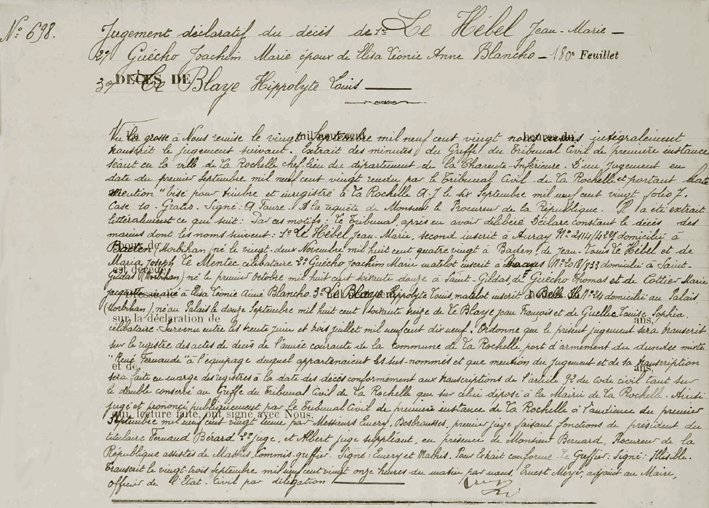 N° 698.
Jugement déclaratif du décès de 1° Le Hébel Jean-Marie —
2° Guécho Joachim Marie époux de Elisa Léonie Anne Blancho — 180e Feuillet
DÉCÈS DE
3° Le Blaye Hippolyte Louis —
Vu la grosse à Nous remise le vingt mil neuf cent vingt heures intégralement
transcrit le jugement suivant. Extrait des minutes du Greffe du Tribunal Civil de première instance
séant en la ville de La Rochelle chef-lieu du département de la Charente Inférieure. D'un Jugement en
date du premier Septembre mil neuf cent vingt rendu par le Tribunal Civil de La Rochelle et portant
mention "Visé pour timbre et enregistré à La Rochelle A.J. le six Septembre mil neuf cent vingt folio 7.
Case 10. Gratis. Signé: Faure. A la requête de Monsieur le Procureur de la République. Il a été extrait
littéralement ce qui suit: Par ces motifs; Le Tribunal après en avoir délibéré Déclare constant le décès des
marins dont les noms suivent: 1° Le Hébel, Jean-Marie, second inscrit à Auray N° domicilié à
Baden (Morbihan) né le vingt deux Novembre mil huit cent quatre vingt à Baden, de Jean-Louis Le Hébel et de
Maria Joseph Le Mentec célibataire 2° Guécho Joachim Marie matelot inscrit à N° domicilié à Saint-
Gildas (Morbihan) né le premier Octobre mil huit cent soixante douze à Saint-Gildas, de Guécho Thomas et de Marie
marié à Elisa Léonie Anne Blancho. 3° Le Blaye Hippolyte Louis matelot inscrit à Belle Ile N° domicilié au Palais
(Morbihan), né au Palais le douze Septembre mil huit cent soixante de Le Blaye Jean François et de Louise Sophie
sur la déclaration de
ans,
célibataire. Survenu entre les trente juin et trois juillet mil neuf cent dix neuf. Ordonne que le présent jugement sera transcrit
sur le registre des actes de décès de l'année courante de la commune de La Rochelle port d'armement du dundee mixte
"René Fernande" à l'équipage duquel appartenaient les sus-nommés et que mention du jugement et de sa transcription
et de
ans,
sera faite en marge des registres à la date des décès conformément aux transcriptions de l'article 92 du code civil tant sur
le double conservé au Greffe du Tribunal Civil de La Rochelle que sur celui déposé à la Mairie de La Rochelle. Ainsi
jugé et prononcé publiquement par le Tribunal Civil de première instance de La Rochelle à l'audience du premier
qui, lecture faite, ont signé avec Nous.
Septembre mil neuf cent vingt tenue par Messieurs premier juge faisant fonctions de président du
titulaire Fernand Bérard juge, et Albert juge suppléant, en présence de Monsieur Bernard, Procureur de la
République assistés de Mathis, Commis-greffier. Signé: et Mathis. Pour Extrait conforme Le Greffier. Signé: Illisible.
Transcrit le vingt trois Septembre mil neuf cent vingt onze heures du matin par nous, Ernest Meyer, adjoint au Maire,
officier de l'Etat-Civil par délégation